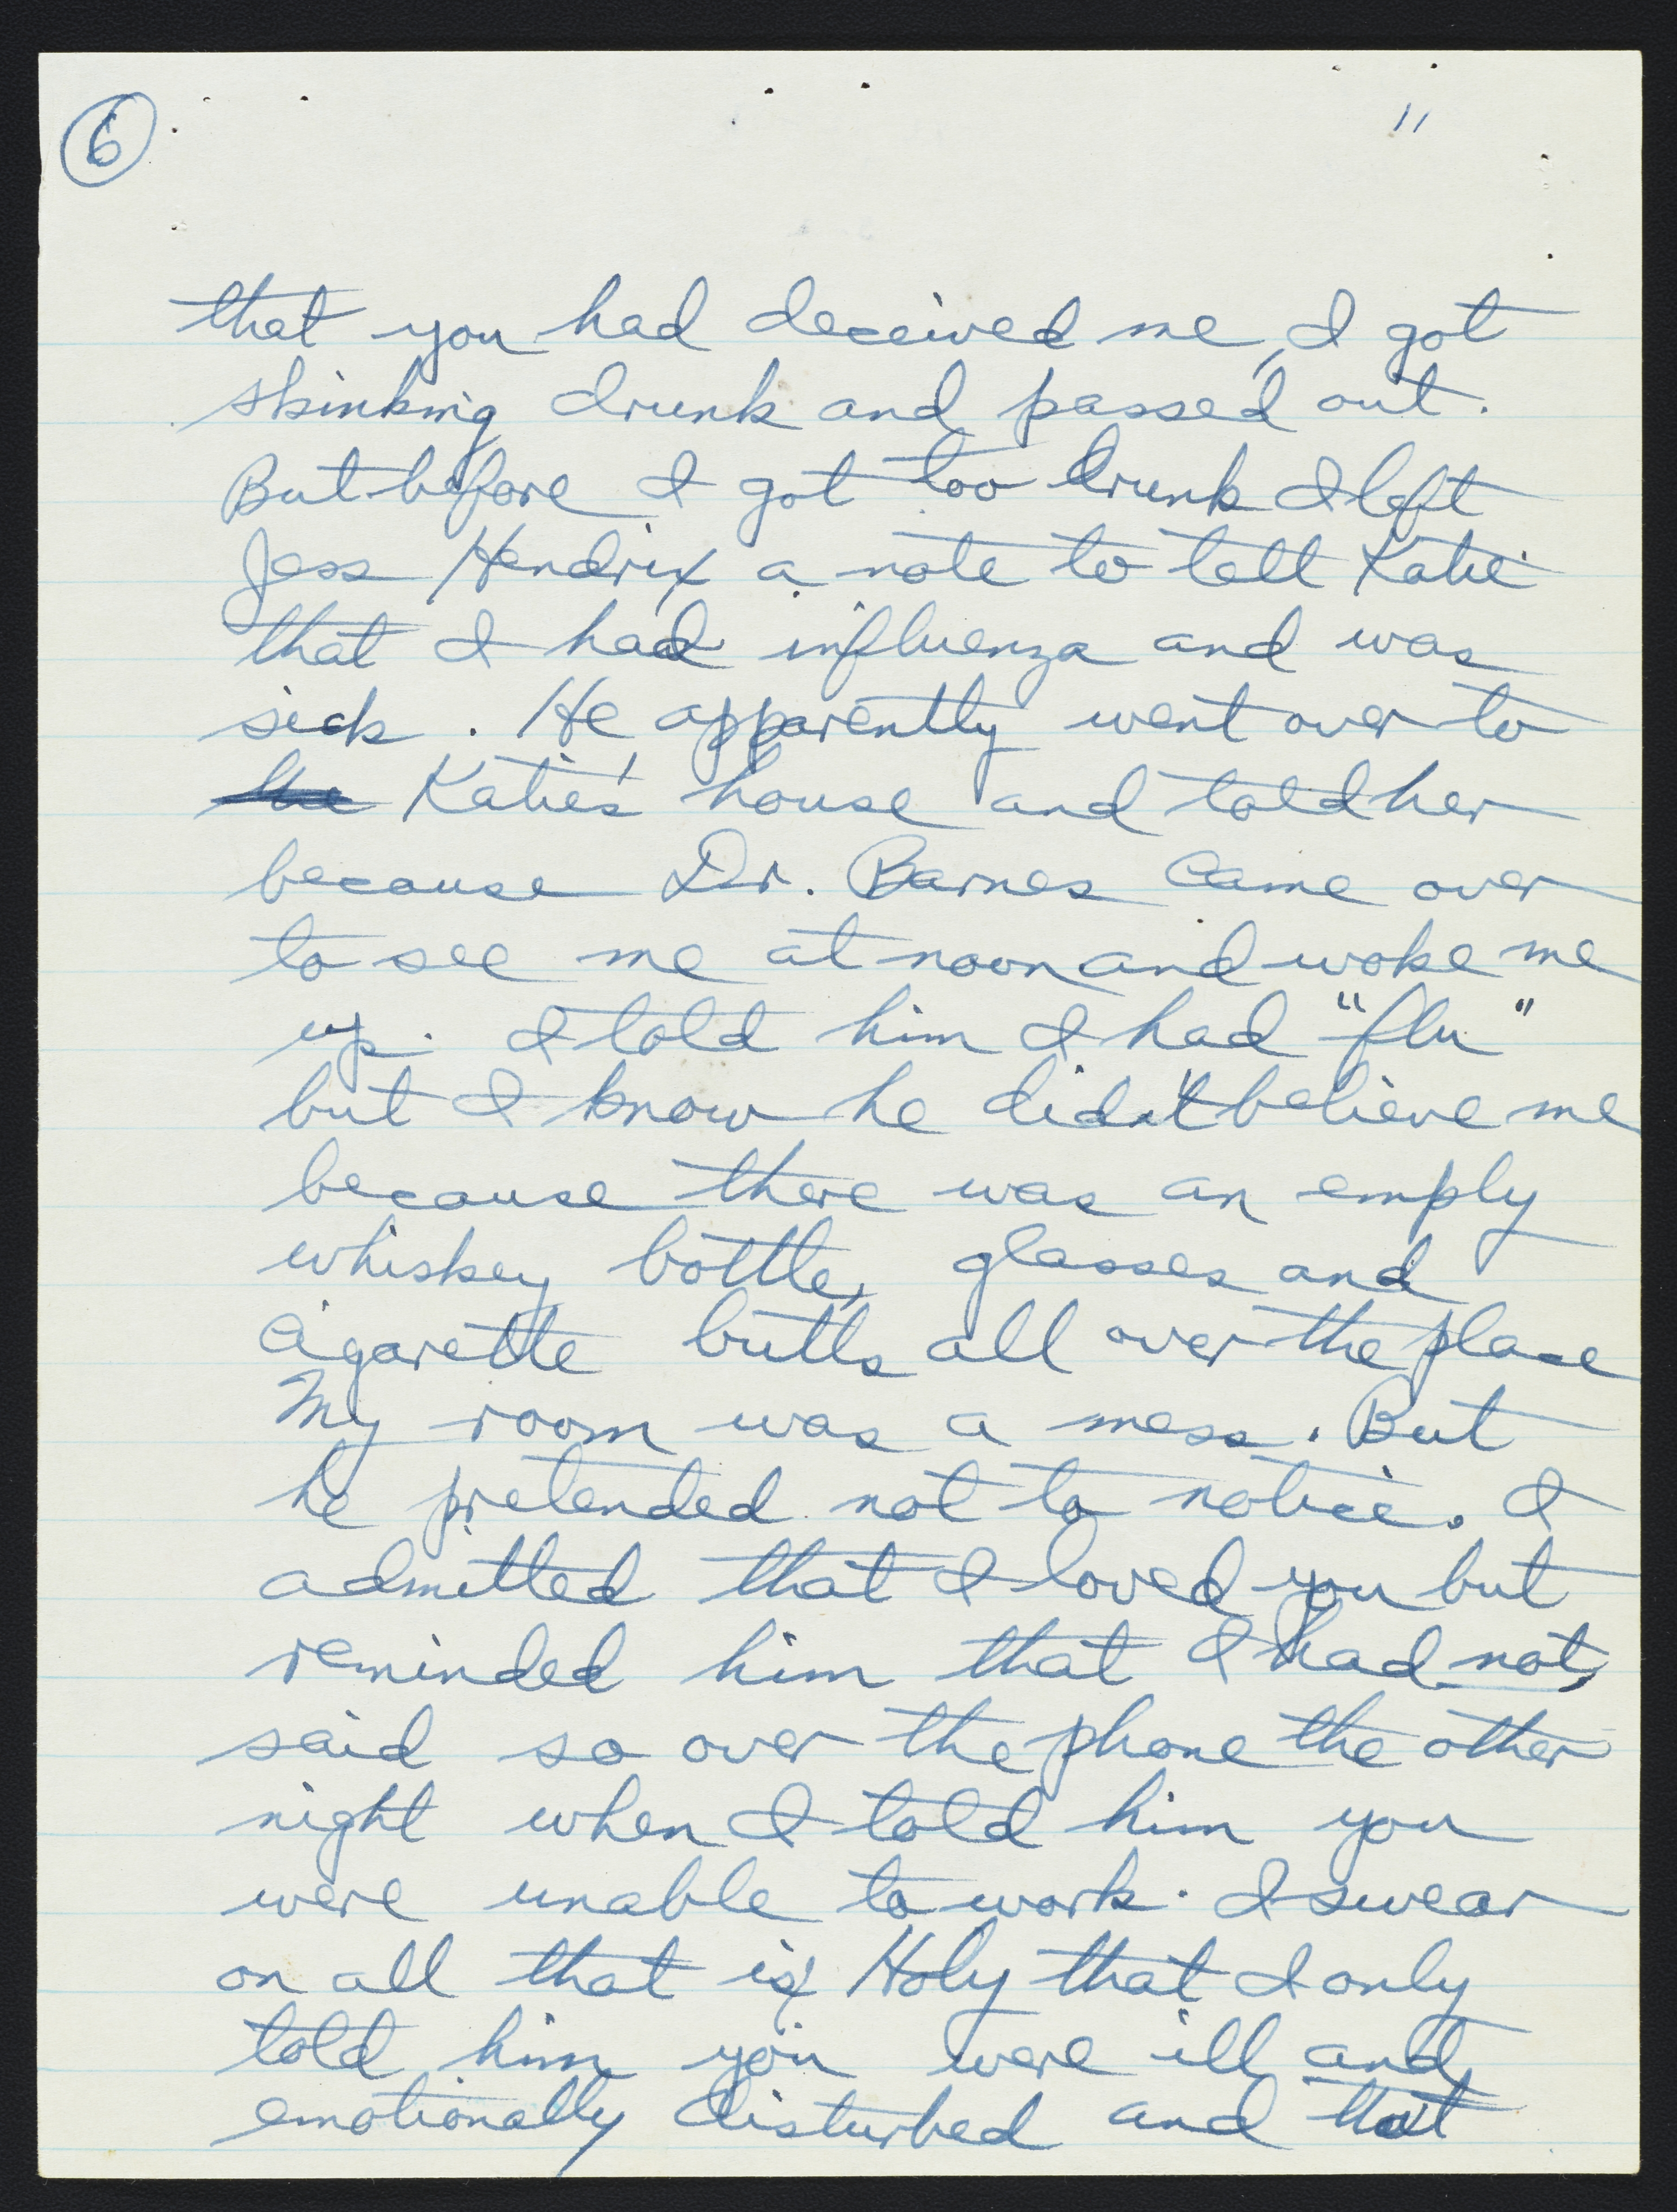 6
11
that you had deceived me, I got
stinking drunk and passed out.
But before I got too drunk I left
Jess Hendrix a note to tell Katie
that I had influenza and was
sick. He apparently went over to
the Katie's house and told her
because Dr. Barnes came over
to see me at noon and woke me
up. I told him I had "flu"
but I know he didn't believe me
because there was an empty
whiskey bottle, glasses and
cigarette butts all over the place
My room was a mess. But
he pretended not to notice. I
admitted that I loved you but
reminded him that I had not
said so over the phone the other
night when I told him you
were unable to work. I swear
on all that is Holy that I only
told him you were ill and
emotionally disturbed and that